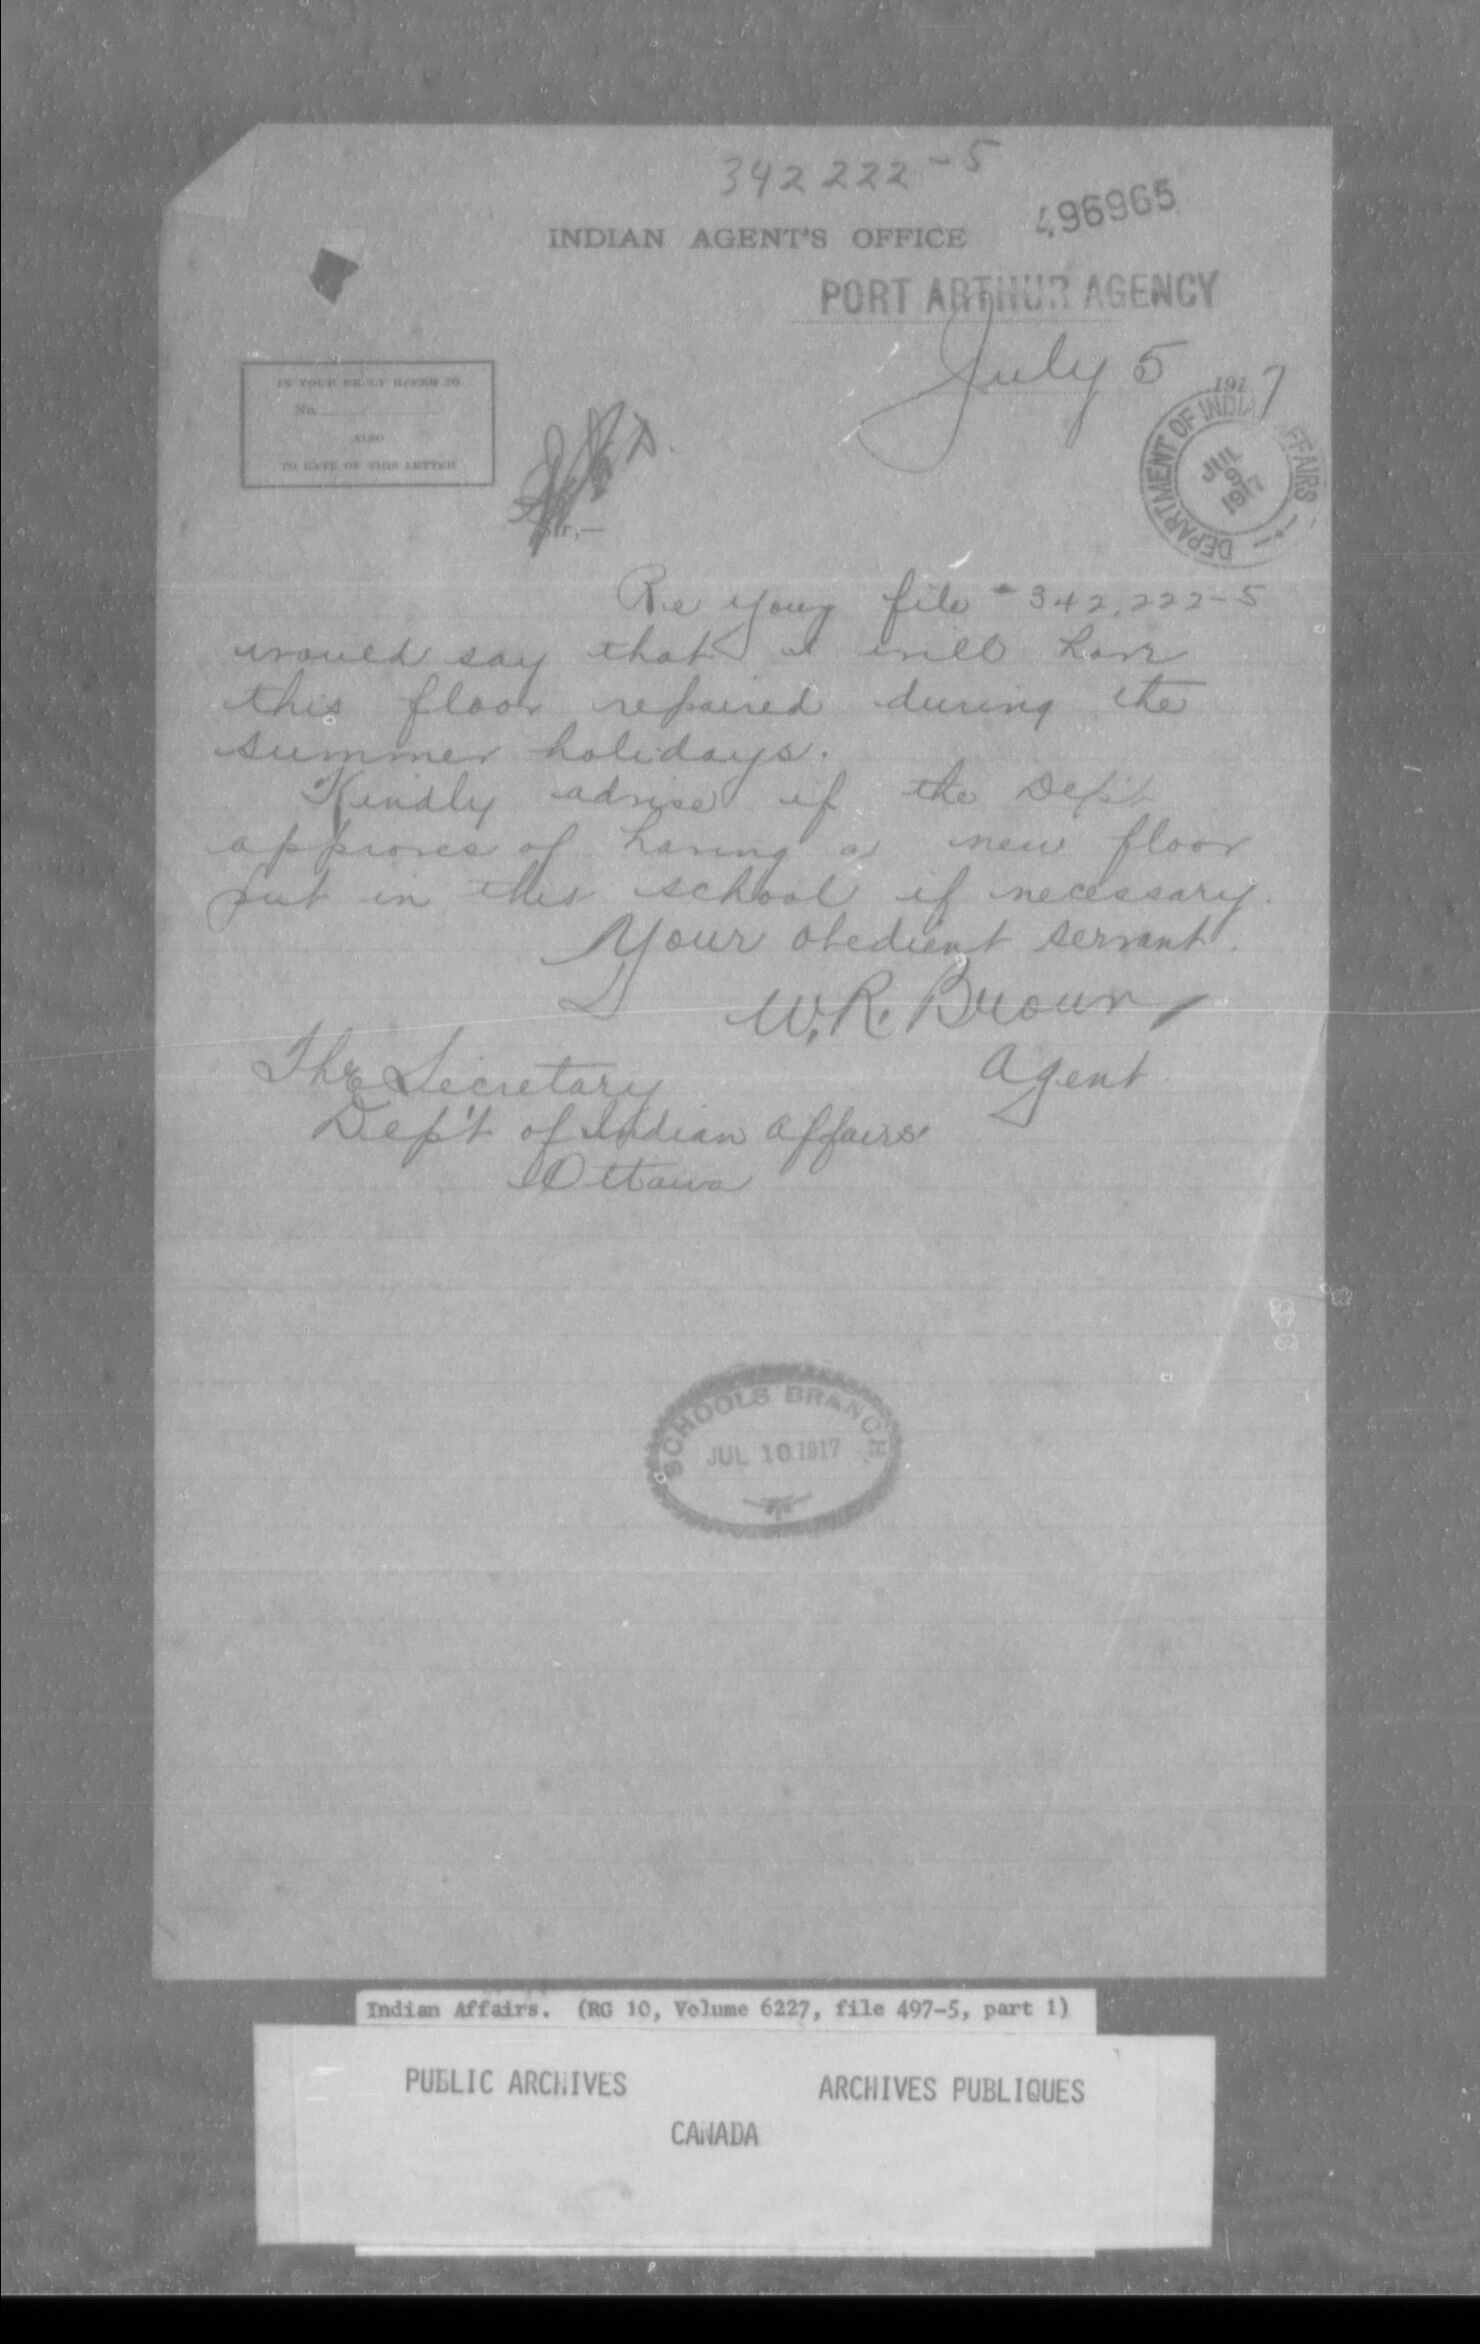 342222-5
496965
INDIAN AGENT'S OFFICE
PORT ARTHUR AGENCY
July 5 1917
IN YOUR REPLY REFER TO
No.
ALSO
TO DATE OF THIS LETTER
DEPARTMENT OF INDIAN AFFAIRS
JUL 9 1917
Sir,—
Re your file #342,222-5
would say that I will have
this floor repaired during the
summer holidays.
Kindly advise if the Dep't
approves of having a new floor
put in this school if necessary.
Your obedient servant.
W. R. Brown
Agent
The Secretary
Dep't of Indian Affairs
Ottawa
SCHOOLS BRANCH
JUL 10 1917
Indian Affairs. (RG 10, Volume 6227, file 497-5, part 1)
PUBLIC ARCHIVES ARCHIVES PUBLIQUES
CANADA